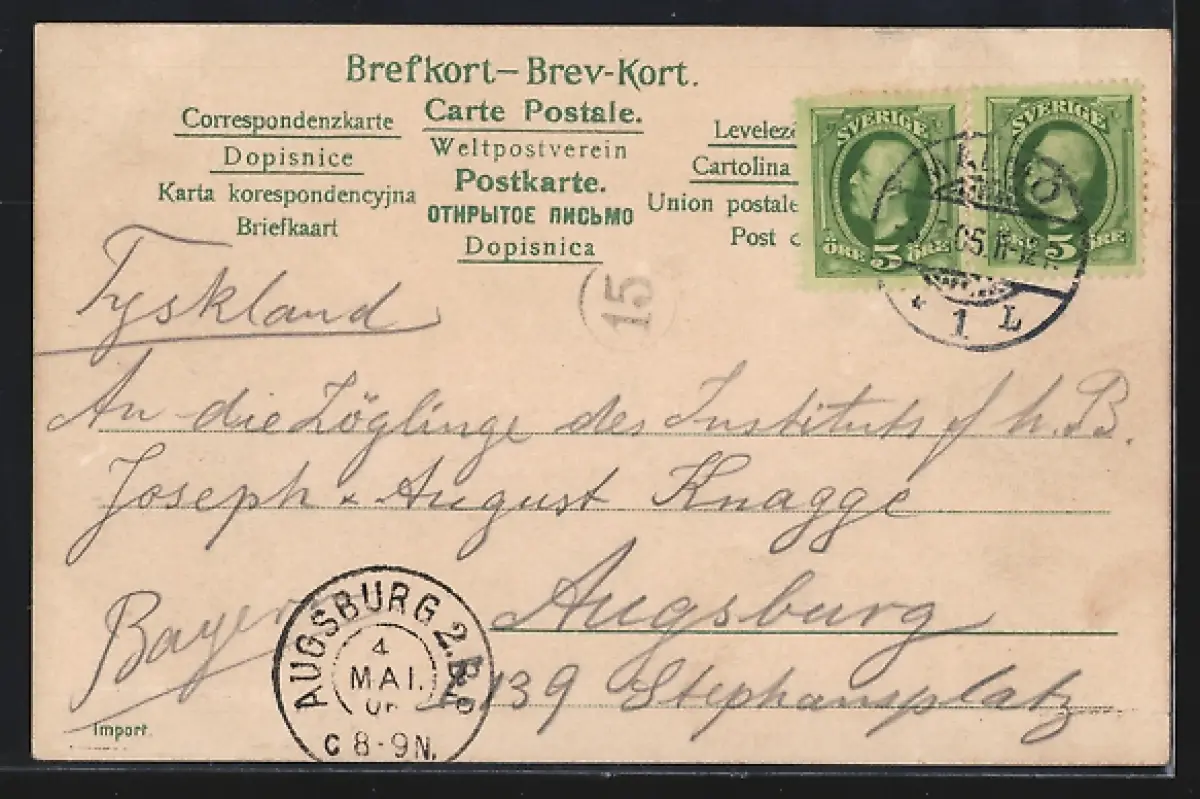 Brefkort–Brev-Kort.
Correspondenzkarte
Dopisnice
Karta korespondencyjna
Briefkaart
Carte Postale.
Weltpostverein
Postkarte.
ОТКРЫТОЕ ПИСЬМО
Dopisnica
Levelező
Cartolina
Union postale
Post c
SVERIGE
ÖRE 5 ÖRE
SVERIGE
5 ÖRE
05 11-12
1 L
15
Tyskland
An die Zöglinge des Instituts f h. B.
Joseph & August Knagge
Augsburg
Bayern
139 Stephansplatz
AUGSBURG 2.
4
MAI.
C 8-9 N.
Import.